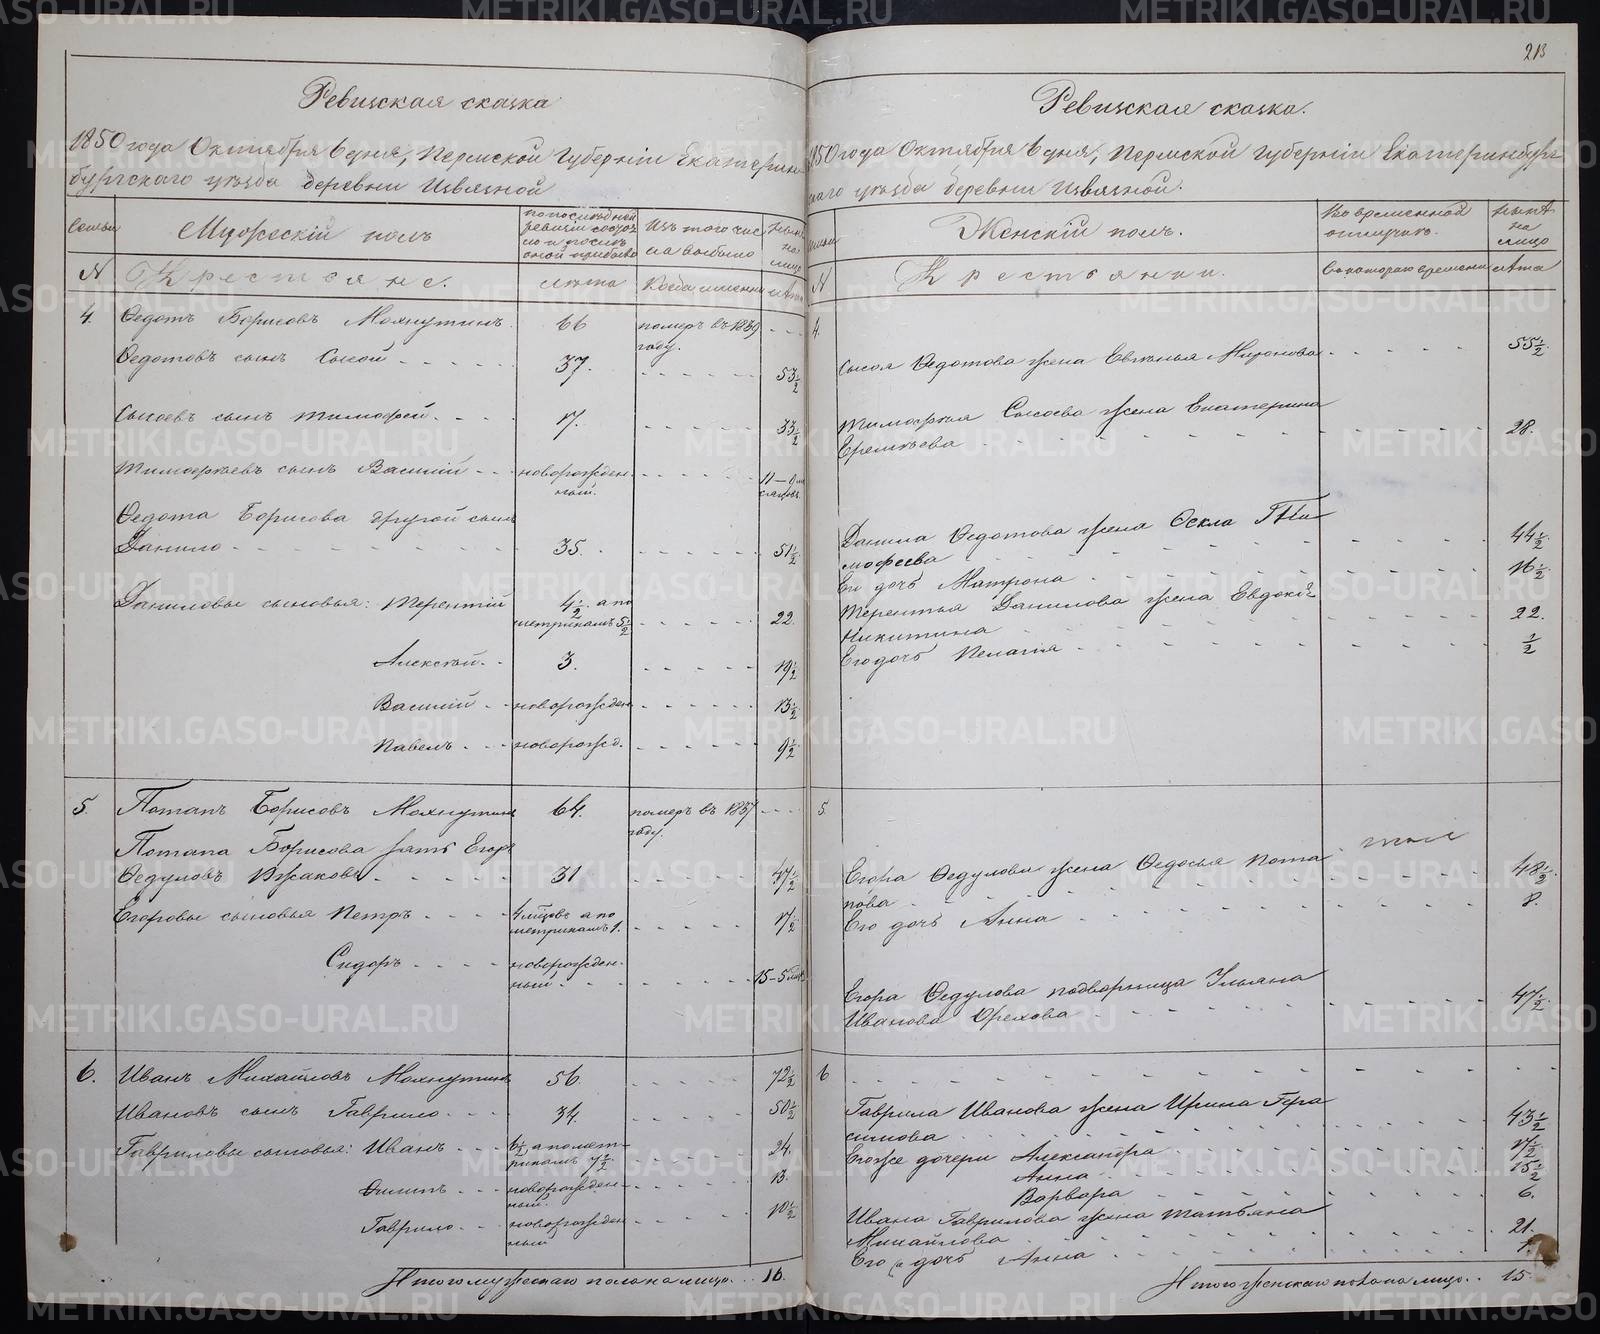 213
Ревизская сказка
1850 года Октября 6 дня, Пермской Губернiи Екатерин-
бургскаго уѣзда деревни Извязной
Семьи
Мужескiй полъ
по последней
ревизiи состоя
ло и после
оной прибыло
Изъ того чис
ла выбыло
ныне
на
лицо
№
Крестьяне.
лѣта
Когда именно
лѣта
4.
Федотъ Борисовъ Мохнуткинъ.
66
померъ въ 1839
году.
Федотовъ сынъ Сысой
37.
53½
Сысоевъ сынъ Тимофей.
17.
33½
Тимофеевъ сынъ Василiй
новорожден-
ный.
11
Федота Борисова другой сынъ
Данило
35.
51½
Даниловы сыновья: Терентiй
4½. а по
метрикамъ 5½
22
Алексѣй.
3.
19½
Василiй
новорожден
13½
Павелъ
новорожд.
9½
5.
Потапъ Борисовъ Мохнуткинъ
64.
померъ въ 1837
году.
Потапа Борисова зять Егоръ
Федуловъ
31
47½
Егоровы сыновья Петръ
а по
метрикамъ 1.
17½
Сидоръ
новорожден-
ный
15-5
6.
Иванъ Михайловъ Мохнуткинъ
56.
72½
Ивановъ сынъ Гаврило
34.
50½
Гавриловы сыновья: Иванъ
6½ а по мет-
рикамъ 7½
24.
новорожден-
ный.
13.
Гаврило
новорожден
ный
10½
Итого мужескаго пола на лицо
16.
Ревизская сказка.
1850 года Октября 6 дня, Пермской Губернiи Екатеринбург-
скаго уѣзда деревни Извязной.
Семьи
Женскiй полъ.
Во временной
отлучкѣ.
ныне
на
лицо
№
Крестьянки.
Съ котораго времени
лѣта
4.
Сысоя Федотова жена Евгенья Миронова
55½
Тимофея Сысоева жена Екатерина
Еремѣева
28.
Данила Федотова жена Фекла Ти
мофеева
44½
Ею дочь Матрона
16½
Терентья Данилова жена Евдокiя
Никитина
22.
Его дочь Пелагiя
½
5
Егора Федулова жена Федосья Пота
пова
48½
Его дочь Анна
8.
Егора Федулова подворница Ульяна
Иванова Орехова
47½
6
Гаврила Иванова жена Ирина Гера
симова
43½
Его же дочери Александра
17½
Анна
15½
Варвара
6.
Ивана Гаврилова жена Татьяна
Михайлова
21.
Его дочь Анна
1.
Итого женскаго пола на лицо
15.
METRIKI.GASO-URAL.RU